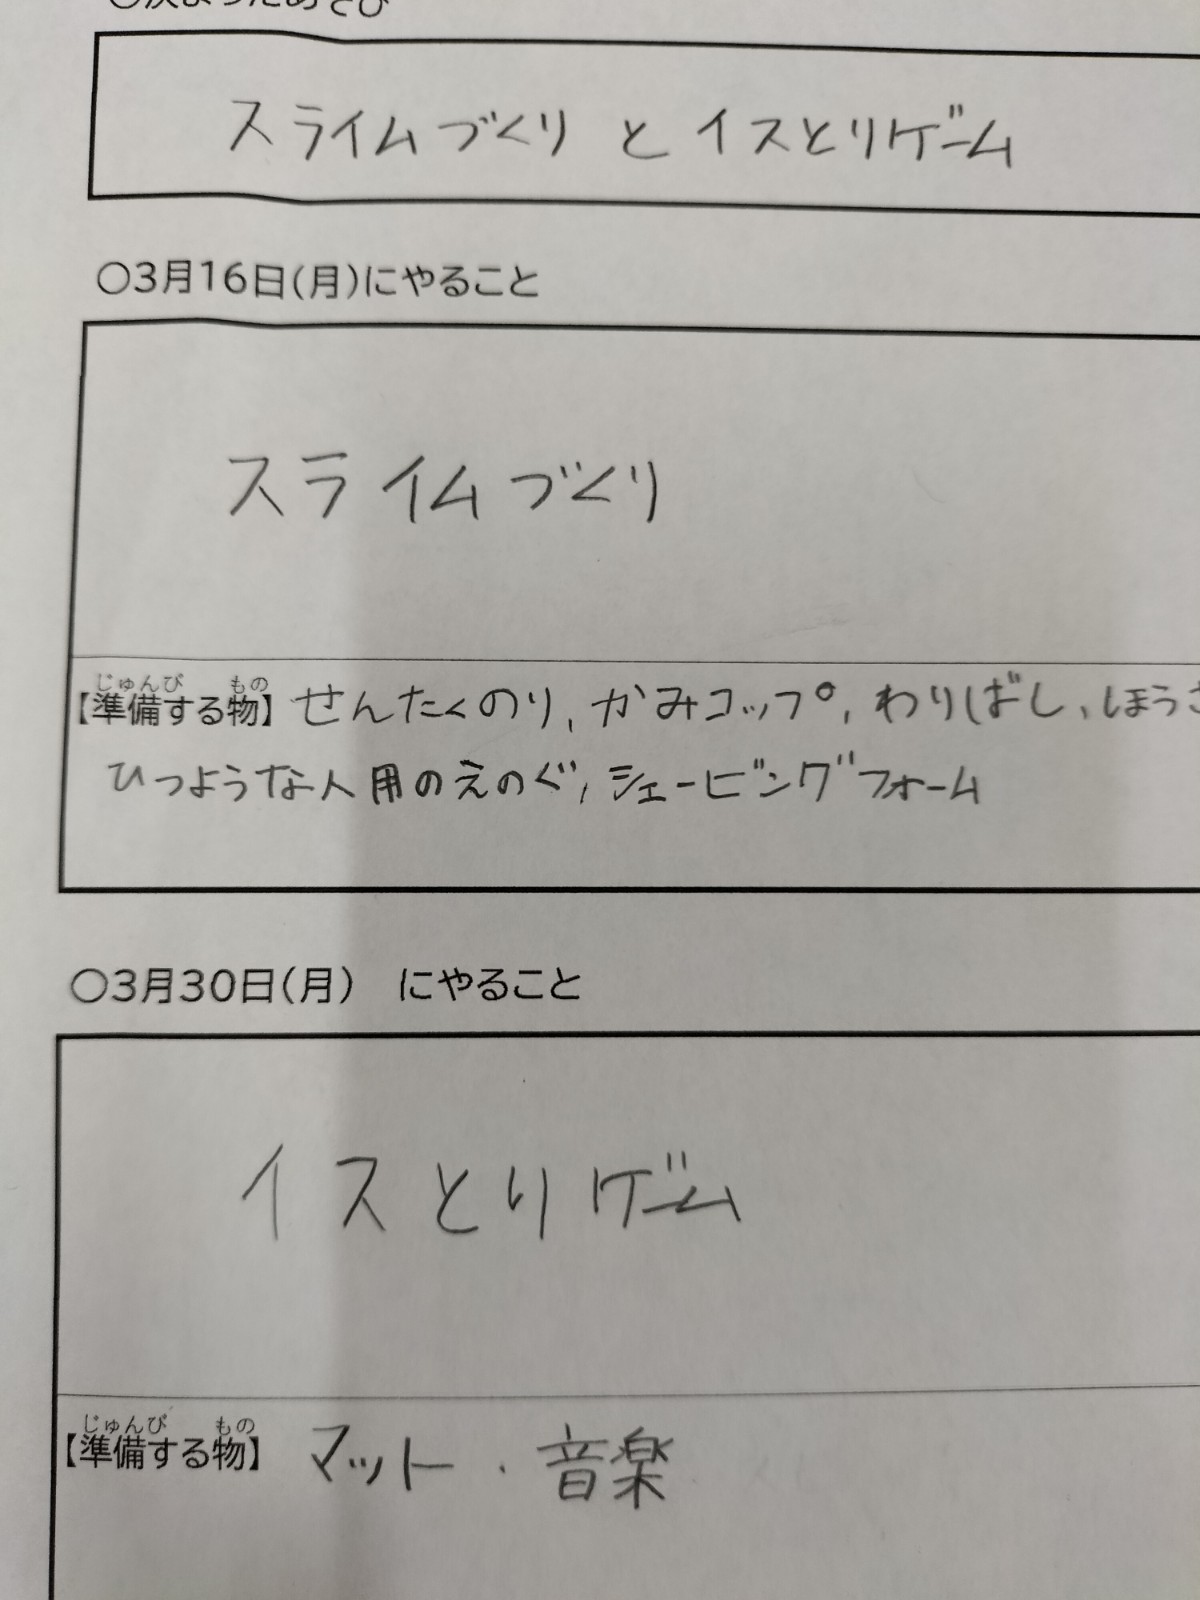 ○決まったあそび
スライムづくり と イスとりゲーム
○3月16日(月)にやること
スライムづくり
じゅんび もの
【準備する物】 せんたくのり, かみコップ, わりばし、ほうさ
ひつような人用のえのぐ, シェービングフォーム
○3月30日(月) にやること
イスとりゲーム
じゅんび もの
【準備する物】 マット・音楽